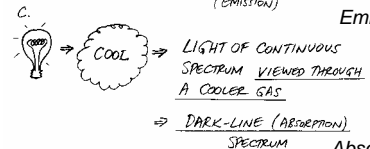 (EMISSION)
Em
C.
COOL
⇒ LIGHT OF CONTINUOUS
SPECTRUM VIEWED THROUGH
A COOLER GAS
⇒ DARK-LINE (ABSORPTION)
SPECTRUM
Abso